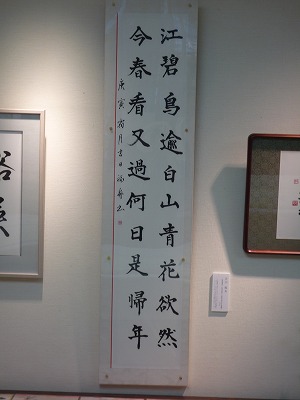 江碧鳥逾白山青花欲然
今春看又過何日是帰年
庚寅 月吉日